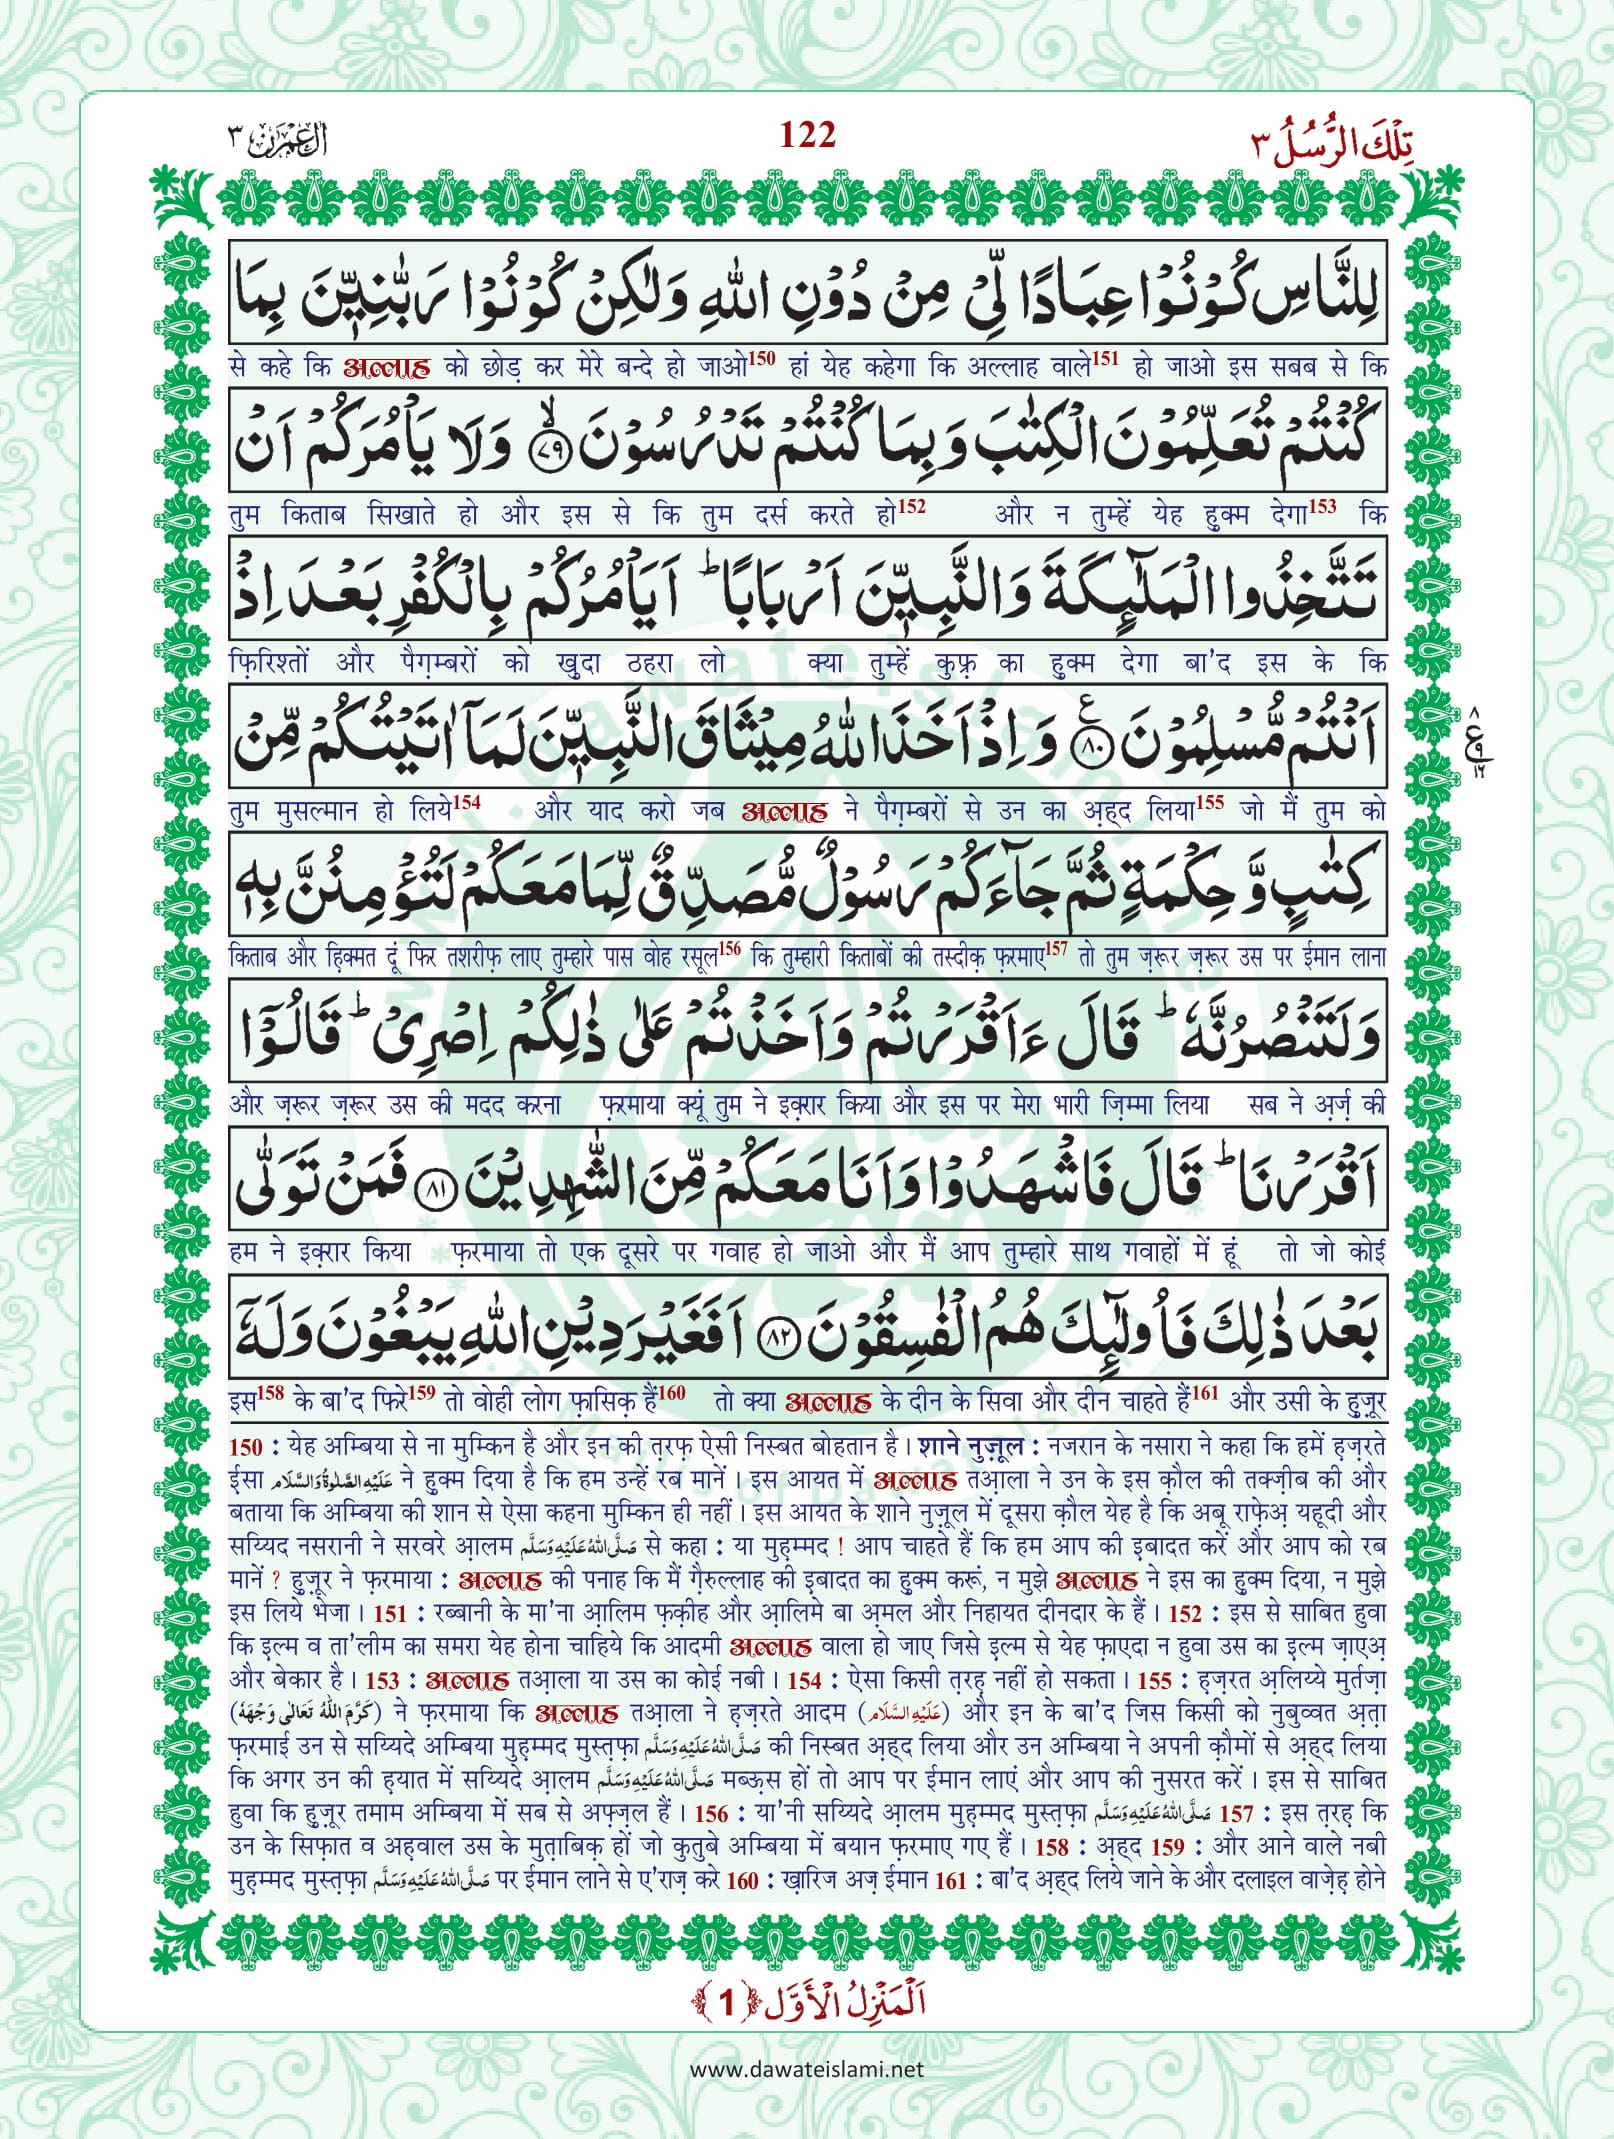 اٰل عمرٰن ٣
122
تِلْكَ الرُّسُلُ ٣
لِلنَّاسِ كُوْنُوْا عِبَادًا لِّیْ مِنْ دُوْنِ اللّٰهِ وَلٰكِنْ كُوْنُوْا رَبّٰنِیّٖنَ بِمَا
से कहे कि अल्लाह को छोड़ कर मेरे बन्दे हो जाओ150 हां येह कहेगा कि अल्लाह वाले151 हो जाओ इस सबब से कि
كُنْتُمْ تُعَلِّمُوْنَ الْكِتٰبَ وَبِمَا كُنْتُمْ تَدْرُسُوْنَ ﴿٧٩﴾ۙ وَلَا یَاْمُرَكُمْ اَنْ
तुम किताब सिखाते हो और इस से कि तुम दर्स करते हो152 और न तुम्हें येह हुक्म देगा153 कि
تَتَّخِذُوا الْمَلٰٓىِٕكَةَ وَالنَّبِیّٖنَ اَرْبَابًا ؕ اَیَاْمُرُكُمْ بِالْكُفْرِ بَعْدَ اِذْ
फ़िरिश्तों और पैग़म्बरों को ख़ुदा ठहरा लो क्या तुम्हें कुफ़्र का हुक्म देगा बा'द इस के कि
اَنْتُمْ مُّسْلِمُوْنَ ﴿٨٠﴾ع وَاِذْ اَخَذَ اللّٰهُ مِیْثَاقَ النَّبِیّٖنَ لَمَاۤ اٰتَیْتُكُمْ مِّنْ
٨ ع ٩ ١٦
तुम मुसल्मान हो लिये154 और याद करो जब अल्लाह ने पैग़म्बरों से उन का अ़ह्द लिया155 जो मैं तुम को
كِتٰبٍ وَّحِكْمَةٍ ثُمَّ جَآءَكُمْ رَسُوْلٌ مُّصَدِّقٌ لِّمَا مَعَكُمْ لَتُؤْمِنُنَّ بِهٖ
किताब और हि़क्मत दूं फिर तशरीफ़ लाए तुम्हारे पास वोह रसूल156 कि तुम्हारी किताबों की तस्दीक़ फ़रमाए157 तो तुम ज़रूर ज़रूर उस पर ईमान लाना
وَلَتَنْصُرُنَّهٗ ؕ قَالَ ءَاَقْرَرْتُمْ وَاَخَذْتُمْ عَلٰی ذٰلِكُمْ اِصْرِیْ ؕ قَالُوْۤا
और ज़रूर ज़रूर उस की मदद करना फ़रमाया क्यूं तुम ने इक़्रार किया और इस पर मेरा भारी ज़िम्मा लिया सब ने अ़र्ज़ की
اَقْرَرْنَا ؕ قَالَ فَاشْهَدُوْا وَاَنَا مَعَكُمْ مِّنَ الشّٰهِدِیْنَ ﴿٨١﴾ فَمَنْ تَوَلّٰی
हम ने इक़्रार किया फ़रमाया तो एक दूसरे पर गवाह हो जाओ और मैं आप तुम्हारे साथ गवाहों में हूं तो जो कोई
بَعْدَ ذٰلِكَ فَاُولٰٓىِٕكَ هُمُ الْفٰسِقُوْنَ ﴿٨٢﴾ اَفَغَیْرَ دِیْنِ اللّٰهِ یَبْغُوْنَ وَلَهٗۤ
इस158 के बा'द फिरे159 तो वोही लोग फ़ासिक़ हैं160 तो क्या अल्लाह के दीन के सिवा और दीन चाहते हैं161 और उसी के हु़ज़ूर
150 : येह अम्बिया से ना मुम्किन है और इन की त़रफ़ ऐसी निस्बत बोहतान है। शाने नुज़ूल : नजरान के नसारा ने कहा कि हमें ह़ज़रते
ईसा عَلَیْهِ الصَّلٰوةُ وَالسَّلَام ने हुक्म दिया है कि हम उन्हें रब मानें। इस आयत में अल्लाह तआ़ला ने उन के इस क़ौल की तक्ज़ीब की और
बताया कि अम्बिया की शान से ऐसा कहना मुम्किन ही नहीं। इस आयत के शाने नुज़ूल में दूसरा क़ौल येह है कि अबू राफे़अ़ यहूदी और
सय्यिद नसरानी ने सरवरे आ़लम صَلَّی اللّٰهُ عَلَیْهِ وَسَلَّم से कहा : या मुह़म्मद ! आप चाहते हैं कि हम आप की इबादत करें और आप को रब
मानें ? हु़ज़ूर ने फ़रमाया : अल्लाह की पनाह कि मैं ग़ैरुल्लाह की इबादत का हुक्म करूं, न मुझे अल्लाह ने इस का हुक्म दिया, न मुझे
इस लिये भेजा। 151 : रब्बानी के मा'ना आ़लिम फ़क़ीह और आ़लिमे बा अ़मल और निहायत दीनदार के हैं। 152 : इस से साबित हुवा
कि इल्म व ता'लीम का समरा येह होना चाहिये कि आदमी अल्लाह वाला हो जाए जिसे इल्म से येह फ़ाएदा न हुवा उस का इल्म ज़ाएअ़
और बेकार है। 153 : अल्लाह तआ़ला या उस का कोई नबी। 154 : ऐसा किसी त़रह़ नहीं हो सकता। 155 : ह़ज़रत अ़लिय्ये मुर्तज़ा
(كَرَّمَ اللّٰهُ تَعَالٰی وَجْهَهٗ) ने फ़रमाया कि अल्लाह तआ़ला ने ह़ज़रते आदम (عَلَیْهِ السَّلَام) और इन के बा'द जिस किसी को नुबुव्वत अ़त़ा
फ़रमाई उन से सय्यिदे अम्बिया मुह़म्मद मुस्त़फ़ा صَلَّی اللّٰهُ عَلَیْهِ وَسَلَّم की निस्बत अ़ह्द लिया और उन अम्बिया ने अपनी क़ौमों से अ़ह्द लिया
कि अगर उन की ह़यात में सय्यिदे आ़लम صَلَّی اللّٰهُ عَلَیْهِ وَسَلَّم मब्ऊ़स हों तो आप पर ईमान लाएं और आप की नुसरत करें। इस से साबित
हुवा कि हु़ज़ूर तमाम अम्बिया में सब से अफ़्ज़ल हैं। 156 : या'नी सय्यिदे आ़लम मुह़म्मद मुस्त़फ़ा صَلَّی اللّٰهُ عَلَیْهِ وَسَلَّم 157 : इस त़रह़ कि
उन के सिफ़ात व अह़वाल उस के मुत़ाबिक़ हों जो कुतुबे अम्बिया में बयान फ़रमाए गए हैं। 158 : अ़ह्द 159 : और आने वाले नबी
मुह़म्मद मुस्त़फ़ा صَلَّی اللّٰهُ عَلَیْهِ وَسَلَّم पर ईमान लाने से ए'राज़ करे 160 : ख़ारिज अज़ ईमान 161 : बा'द अ़ह्द लिये जाने के और दलाइल वाज़ेह़ होने
اَلْمَنْزِلُ الْاَوَّل ﴿1﴾
www.dawateislami.net